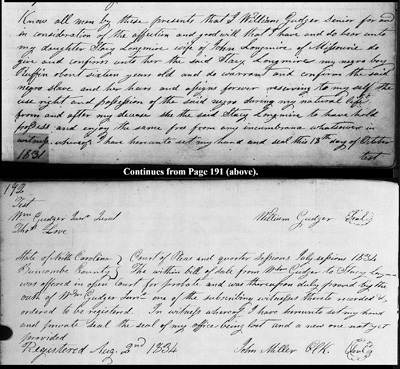 Know all men by these presents that I William Gudger Senior for and
in consideration of the affection and good will that I have and do bear unto
my daughter Stacy Longmire wife of John Longmire of Missourie do
give and confirm unto her the said Stacy Longmire my negro boy
Ruffin about sixteen years old and do warrant and confirm the said
negro slave and her heirs and assigns forever reserving to my self the
use right and possession of the said negro during my natural life
from and after my decease she the said Stacy Longmire to have hold
possess and enjoy the same free from any incumbrance whatsoever in
witness whereof I have hereunto set my hand and seal this 13th day of October
1831 test
Continues from Page 191 (above).
192
Test
Wm Gudger Junr Jurat William Gudger {Seal}
Thos Love
State of North Carolina } Court of Pleas and quarter Sessions July sessions 1834
Buncombe County } The within bill of sale from Wm Gudger to Stacy
was offered in open Court for probate and was thereupon duly proved by the
oath of Wm Gudger Junr one of the subscribing witnesses thereto recorded &
ordered to be registered. In witness whereof I have hereunto set my hand
and private seal the seal of my office being lost and a new one not yet
provided
Registered Aug. 2nd 1834 John Miller Clk. {Seal}